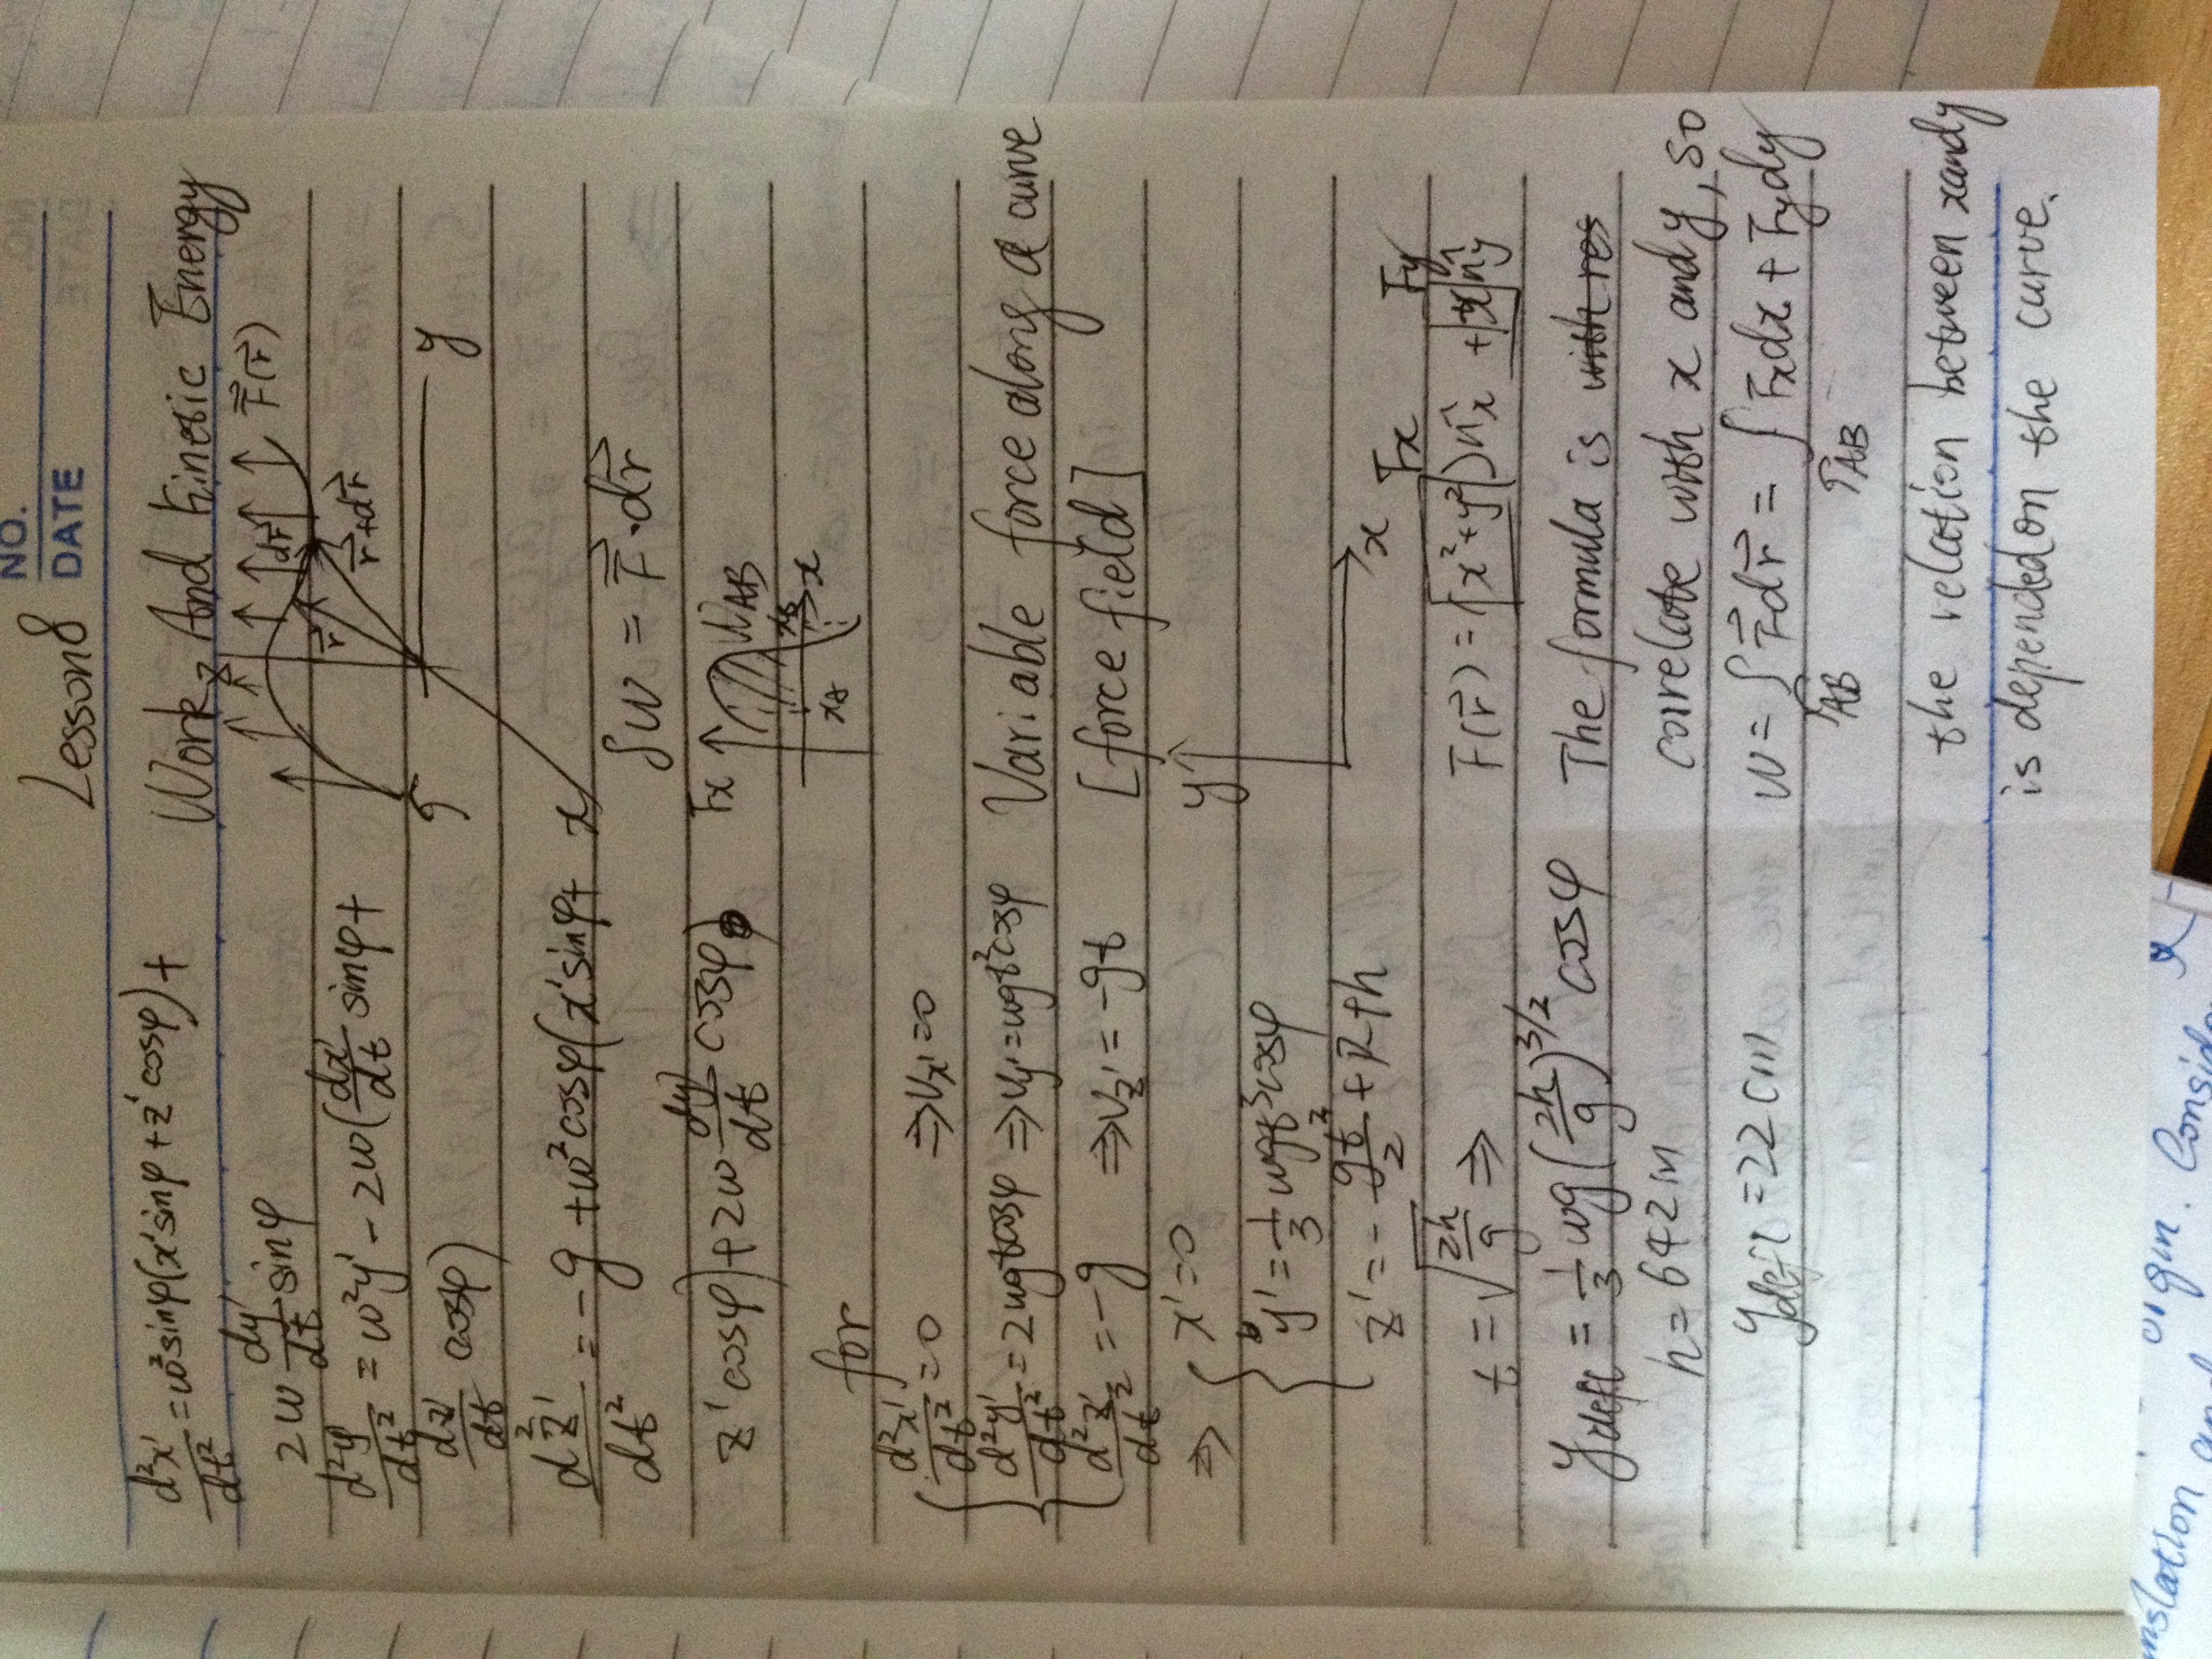 NO.
DATE
Lesson8
d²x'/dt² = ω²sinφ(x'sinφ + z'cosφ) +
2ω dy'/dt sinφ
d²y'/dt² = ω²y' - 2ω(dx'/dt sinφ +
dz'/dt cosφ)
d²z'/dt² = -g + ω²cosφ(x'sinφ +
z'cosφ) + 2ω dy'/dt cosφ
for
d²x'/dt² = 0 ⇒ Vx' = 0
d²y'/dt² = 2ωgtcosφ ⇒ Vy' = ωgt²cosφ
d²z'/dt² = -g ⇒ Vz' = -gt
⇒ x' = 0
y' = 1/3 ωgt³cosφ
z' = - gt²/2 + R + h
t = √(2h/g) ⇒
y defl = 1/3 ωg(2h/g)^3/2 cosφ
h = 642m
y defl = 22cm
Work And Kinetic Energy
z
F⃗(r⃗)
dr⃗
r⃗
r⃗+dr⃗
y
x
δW = F⃗·dr⃗
Fx
WAB
xB
x
xA
Variable force along a curve
[force field]
y
x
Fx Fy
F(r⃗) = (x²+y²)n̂x + |x|n̂y
The formula is with res
correlate with x and y, so
W = ∫ F⃗dr⃗ = ∫ Fxdx + Fydy
ΓAB ΓAB
the relation between x and y
is depended on the curve.
nslation
origin. Conside
and